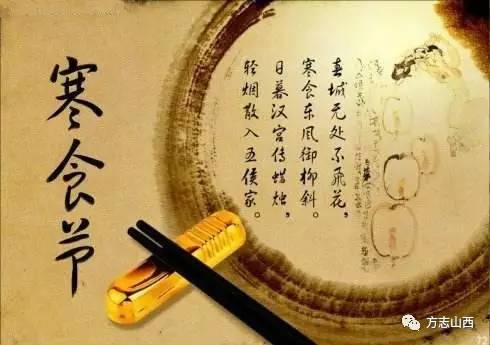 寒食节
春城无处不飞花，
寒食东风御柳斜。
日暮汉宫传蜡烛，
轻烟散入五侯家。
方志山西